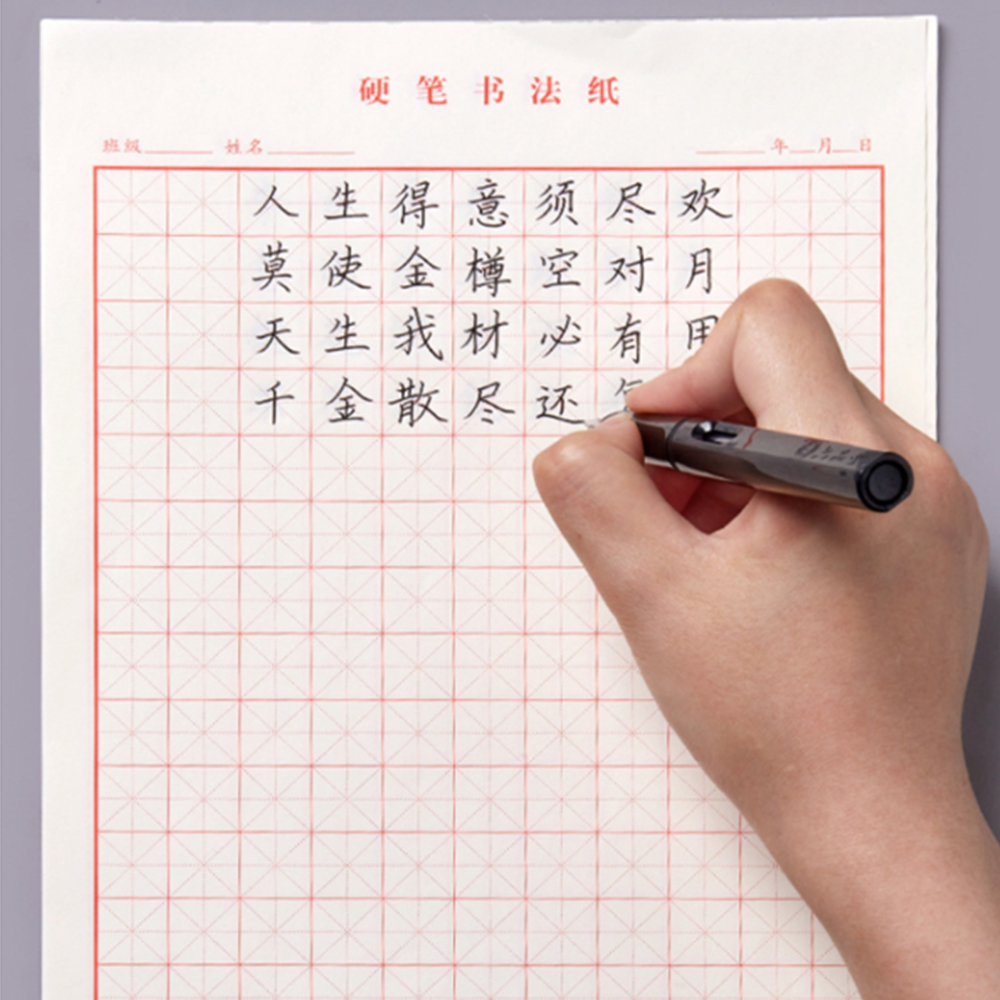 硬笔书法纸
班级 姓名 年 月 日
人生得意须尽欢
莫使金樽空对月
天生我材必有用
千金散尽还